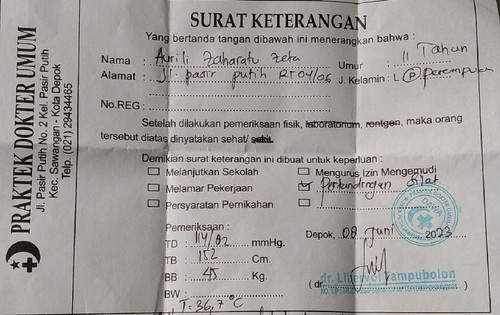 PRAKTEK DOKTER UMUM
Jl. Pasir Putih No. 2 Kel. Pasir Putih
Kec. Sawangan - Kota Depok
Telp. (021) 29434465
SURAT KETERANGAN
Yang bertanda tangan dibawah ini menerangkan bahwa :
Nama : Aurili Zaharatu Zeta Umur : 11 Tahun
Alamat : Jl. pasir putih RT 04/06 J. Kelamin : L P perempuan
No.REG :
Setelah dilakukan pemeriksaan fisik, laboratorium, rontgen, maka orang
tersebut diatas dinyatakan sehat/ sakit.
Demikian surat keterangan ini dibuat untuk keperluan :
Melanjutkan Sekolah Mengurus Izin Mengemudi
Melamar Pekerjaan Pertandingan Silat
Persyaratan Pernikahan
Pemeriksaan : Depok, 08 Juni 2023
TD : 114/82 mmHg.
TB : 152 Cm.
BB : 45 Kg.
BW :
T : 36,7 °C
(dr. Tampubolon